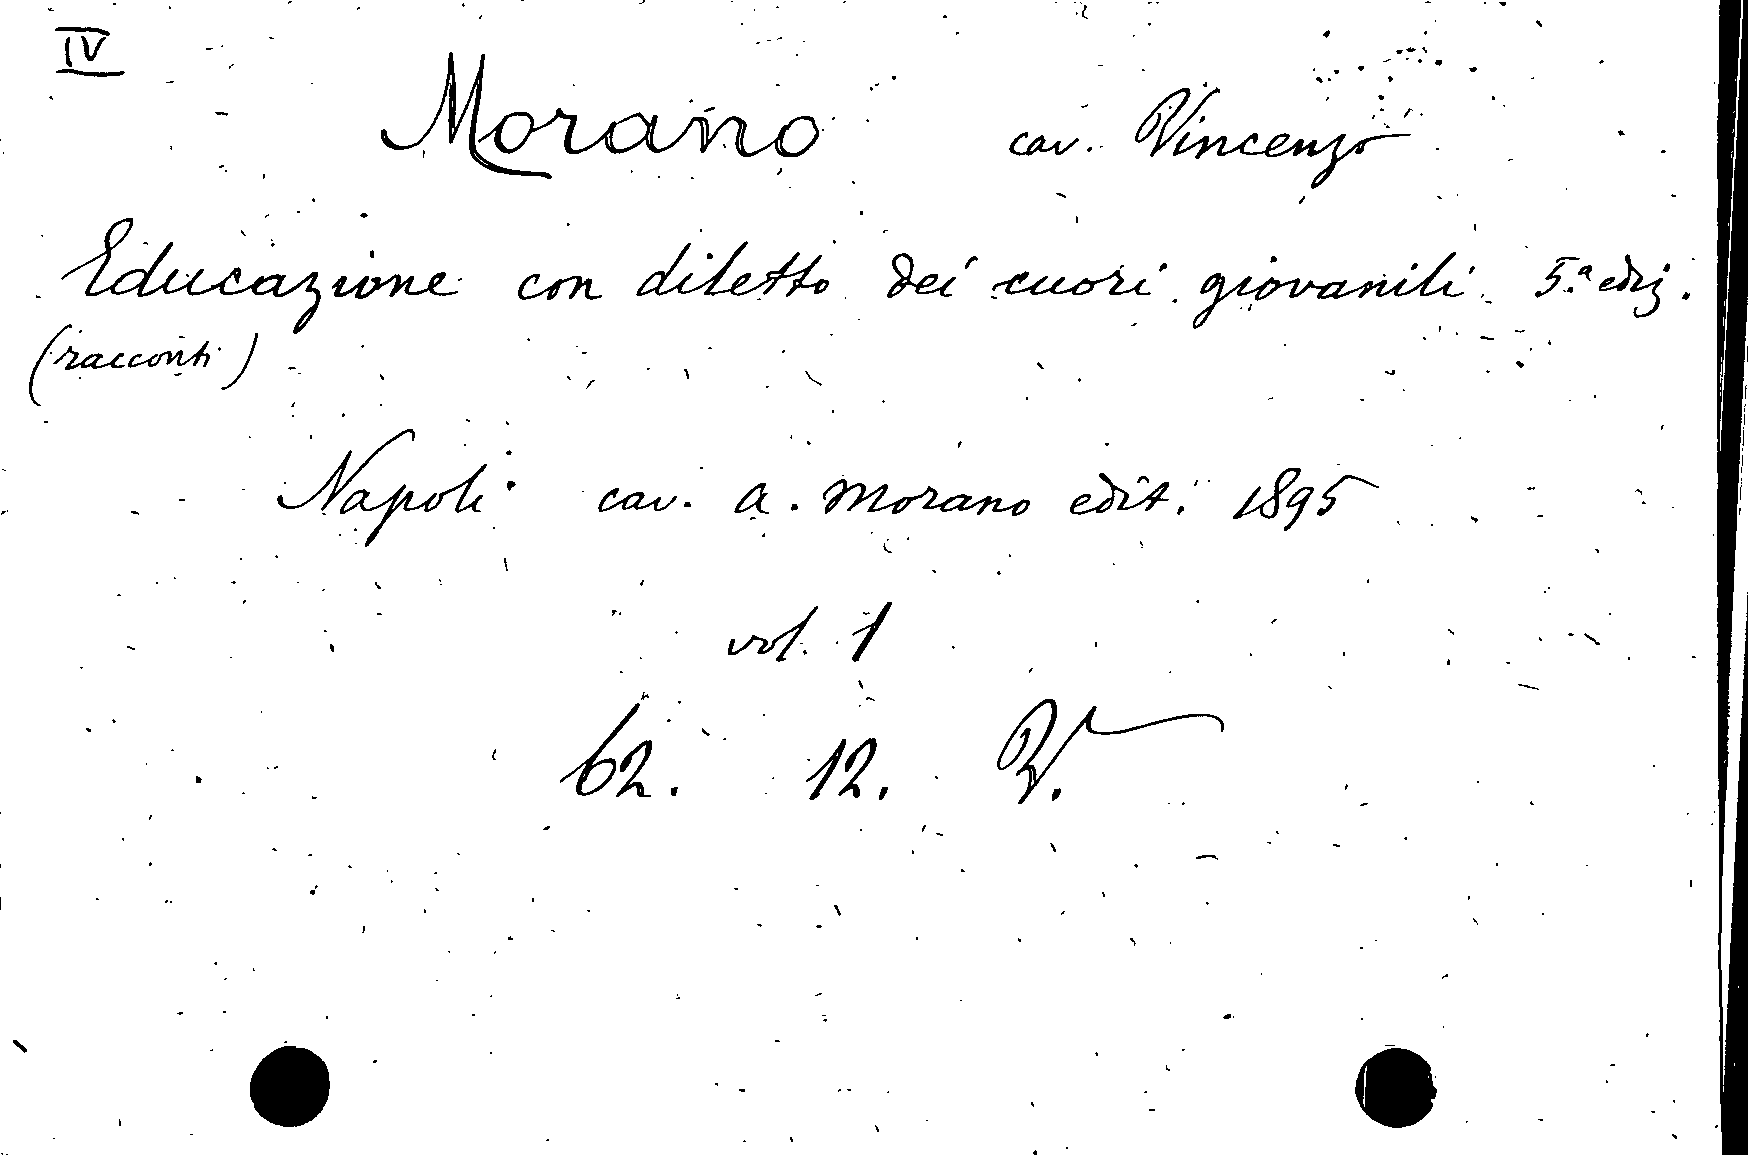 IV
Morano cav. Vincenzo
Educazione con diletto dei cuori giovanili 5.a ediz.
(racconti)
Napoli cav. A. Morano edit. 1895
vol. 1
62. 12. V.